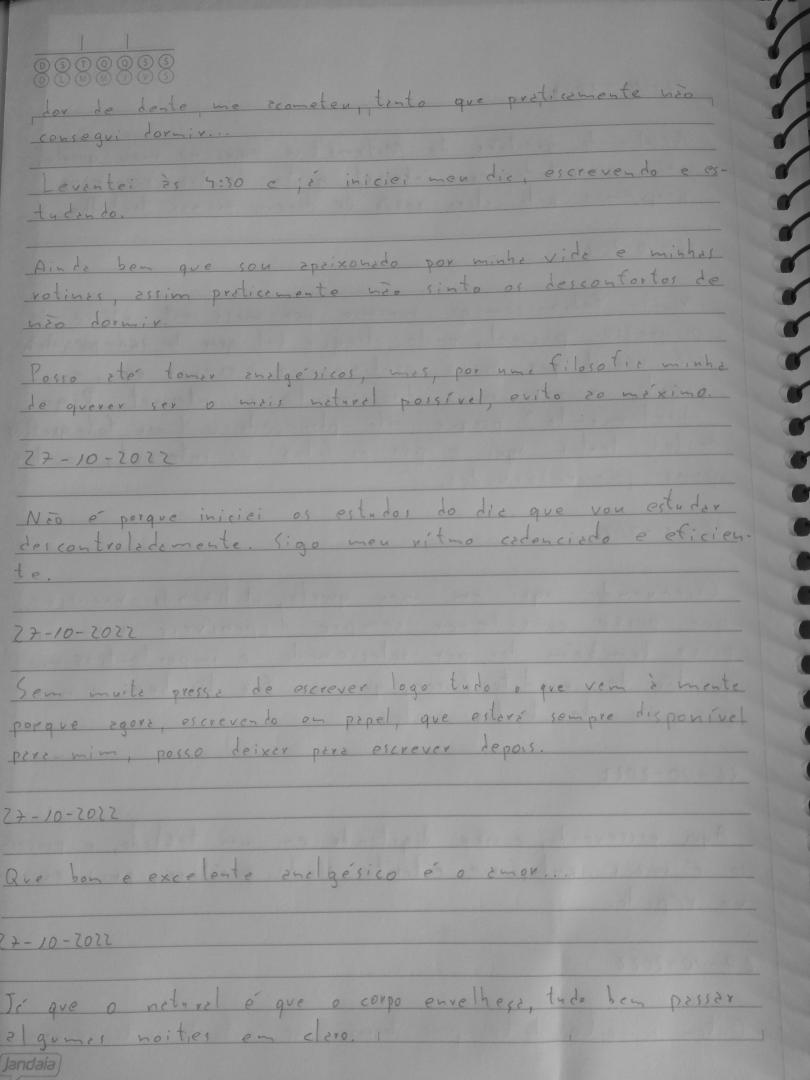 D S T Q Q S S
D L M M J V S
dor de dente me acometeu, tanto que praticamente não
consegui dormir...
Levantei às 4:30 e já iniciei meu dia, escrevendo e es-
tudando.
Ainda bem que sou apaixonado por minha vida e minhas
rotinas, assim praticamente não sinto os desconfortos de
não dormir.
Posso até tomar analgésicos, mas, por uma filosofia minha
de querer ser o mais natural possível, evito ao máximo.
27-10-2022
Não é porque iniciei os estudos do dia que vou estudar
descontroladamente. Sigo meu ritmo cadenciado e eficien-
te.
27-10-2022
Sem muita pressa de escrever logo tudo o que vem à mente
porque agora, escrevendo em papel, que estará sempre disponível
para mim, posso deixar para escrever depois.
27-10-2022
Que bom e excelente analgésico é o amor...
27-10-2022
Já que o natural é que o corpo envelheça, tudo bem passar
algumas noities em claro.
Jandaia